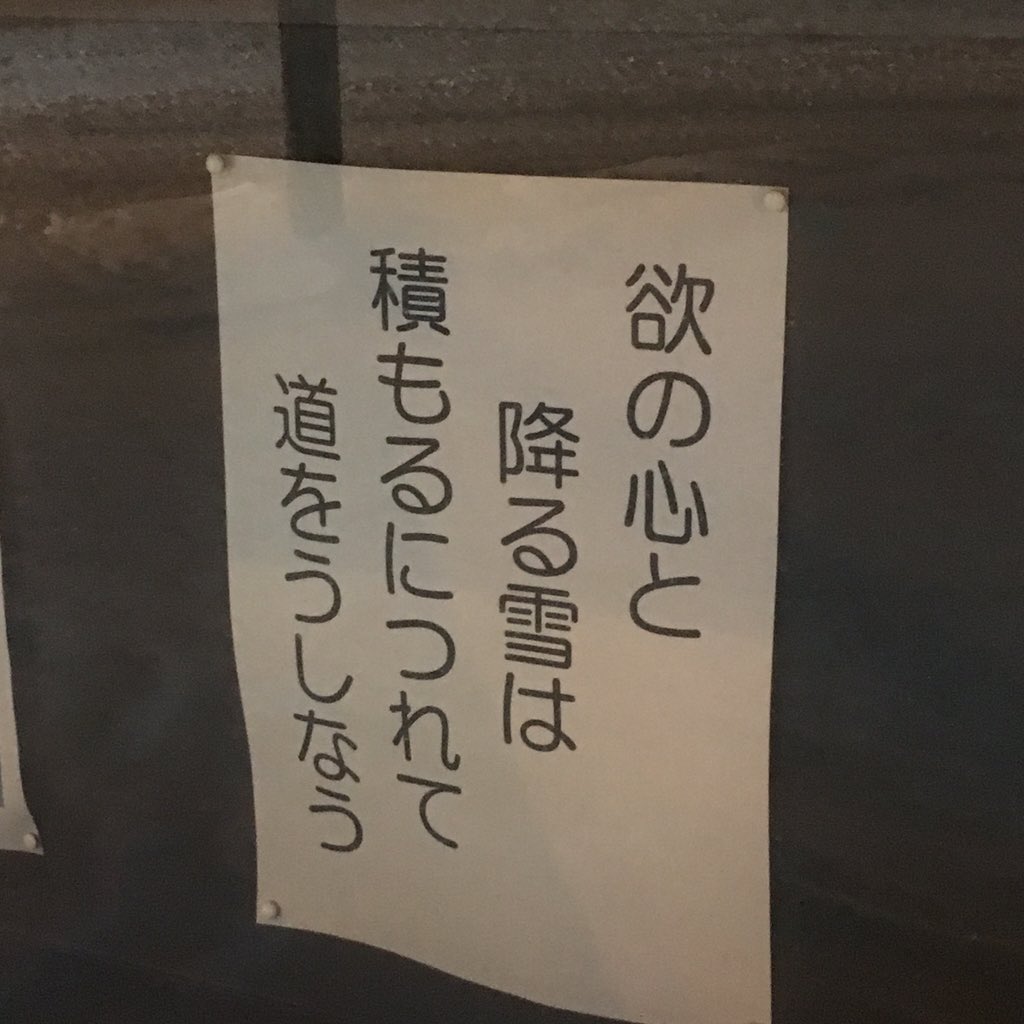 欲の心と
降る雪は
積もるにつれて
道をうしなう